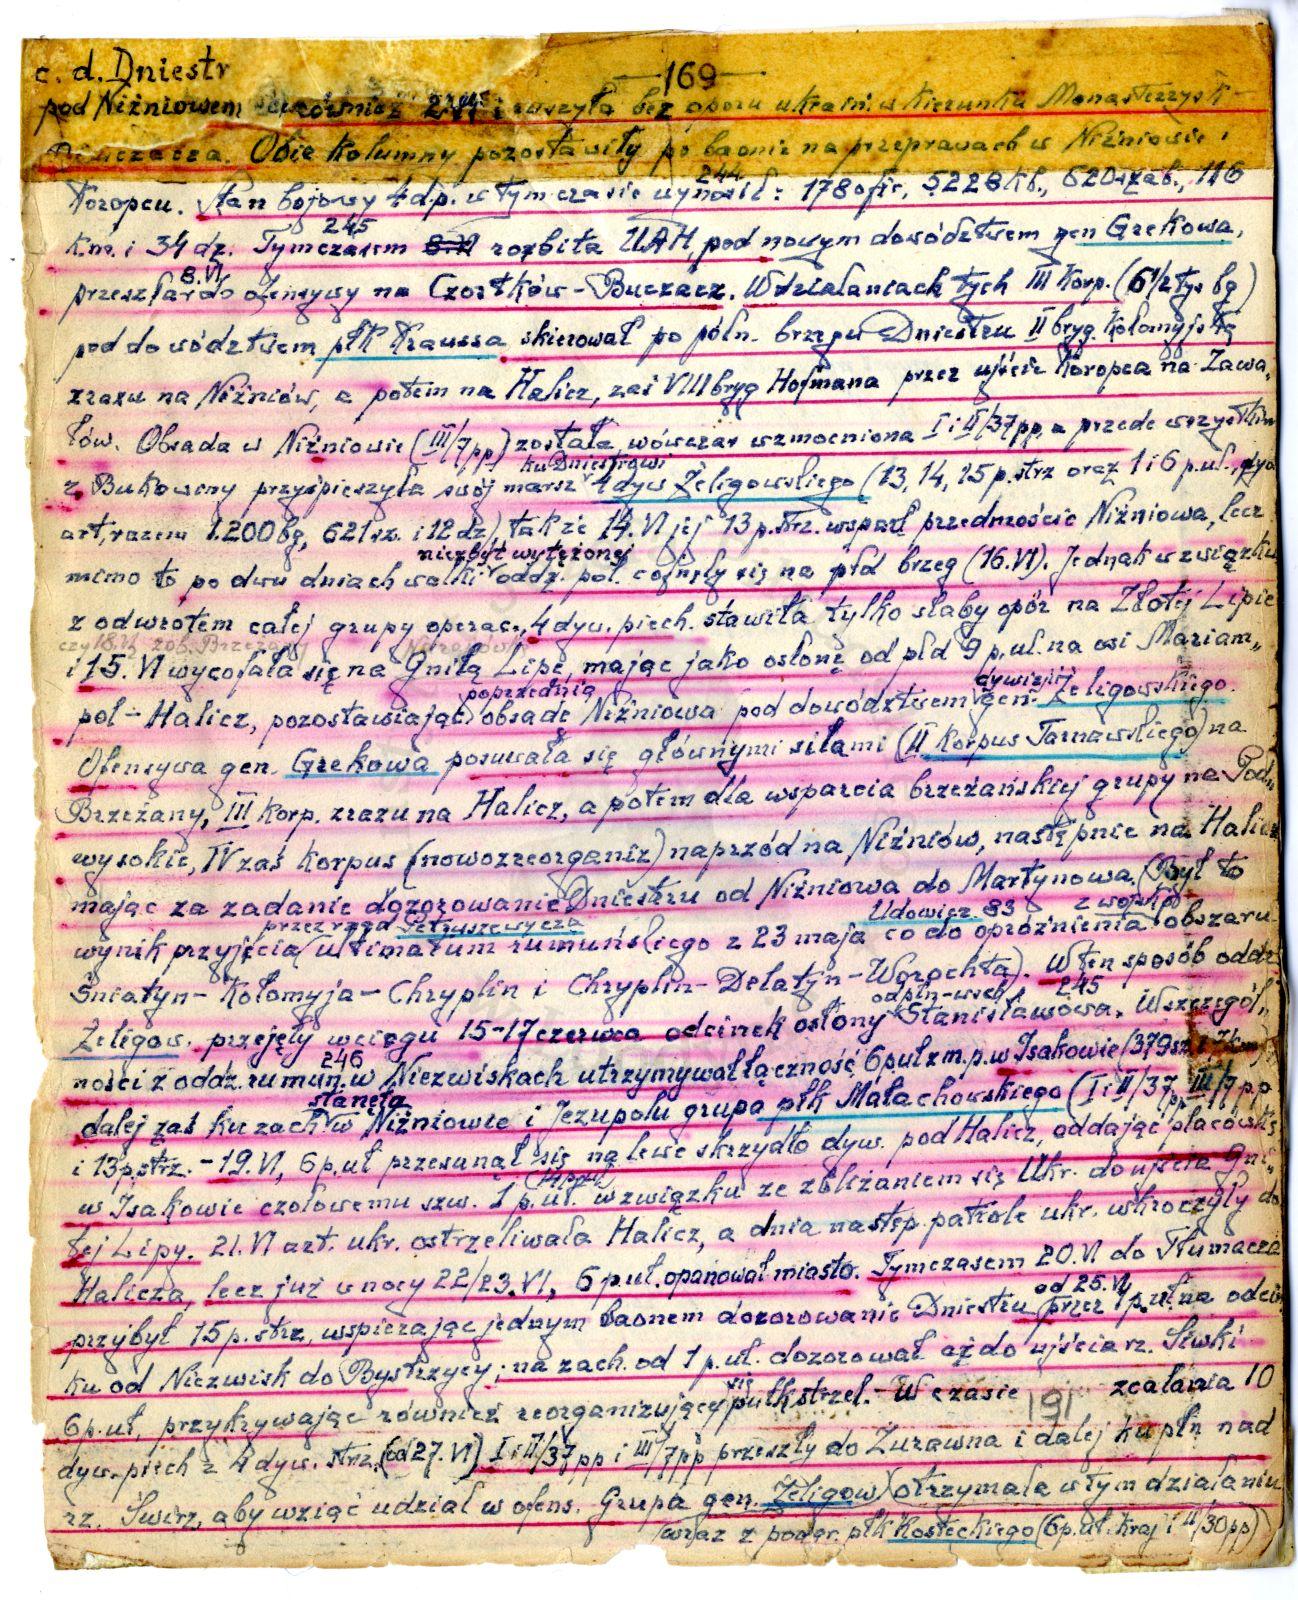 c. d. Dniestr
—169—
pod Niżniowem również 2.VI i ruszyła bez oporu ukraiń. w kierunku Monasterzysk –
Buczacza. Obie kolumny pozostawiły po baonie na przeprawach w Niżniowie i
244
Koropcu. Stan bojowy 4 d.p. w tym czasie wynosił: 178 ofic, 5228 kb., 620 szab., 116
245
k.m. i 34 dz. Tymczasem rozbita UAH, pod nowym dowództwem gen Grekowa,
8.VI
przeszła do ofensywy na Czortków – Buczacz. W działaniach tych III Korp. (6 1/2 tys bg)
pod dowództwem płk Kraussa skierował po półn. brzegu Dniestru II bryg. Kołomyjską
zrazu na Niżniów, a potem na Halicz, zaś VIII bryg Hofmana przez ujście Koropca na Zawa„
łów. Obsada w Niżniowie (III/7pp) została wówczas wzmocniona I i II/37pp, a przede wszystkim
ku Dniestrowi
z Bukowiny przyśpieszyła swój marsz 4 dyw Żeligowskiego (13, 14, 15 p. strz oraz 1 i 6 p.uł., dyo
art, razem 1.200 bg, 621 sz. i 12 dz), także 14.VI jej 13 p. strz. wsparł przedmoście Niżniowa, lecz
niezbyt wytężonej
mimo to po dwu dniach walki oddz. pol. cofnęły się na płd brzeg (16.VI). Jednak w związku
z odwrotem całej grupy operac., 4 dyw. piech. stawiła tylko słaby opór na Złotej Lipie
czy 18.VI zob. Brzeżany
i 15.VI wycofała się na Gniłą Lipę, mając jako osłonę od płd 9 p.uł. na osi Mariam„
poprzednią dywizji
pol – Halicz, pozostawiając obsadę Niżniowa pod dowództwem gen. Żeligowskiego.
Ofensywa gen. Grekowa posuwała się głównymi siłami (II Korpus Tarnawskiego) na
Brzeżany, III Korp. zrazu na Halicz, a potem dla wsparcia brzeżańskiej grupy na Pod„
wysokie, IV zaś Korpus (nowozreorganiz) naprzód na Niżniów, następnie na Halicz
mając za zadanie dozorowanie Dniestru od Niżniowa do Martynowa. (Był to
przez rząd Petruszewycza Udowicz 83 z wojsk
wynik przyjęcia ultimatum rumuńskiego z 23 maja co do opróżnienia obszaru
Śniatyn – Kołomyja – Chryplin i Chryplin – Delatyn – Worochta). W ten sposób oddz
od płn-wsch. 245
Żeligow. przejęły w ciągu 15–17 czerwca odcinek osłony Stanisławowa. W szczegól„
246
ności z oddz. rumuń. w Niezwiskach utrzymywał łączność 6 puł z m.p. w Isakowie (379 sz i 7 km)
stanęła
dalej zaś ku zach w Niżniowie i Jezupolu grupa płk Małachowskiego (I i II/37 pp III/7 pp
i 13 p. strz. – 19.VI, 6 p.uł przesunął się na lewe skrzydło dyw. pod Halicz, oddając placówkę
w Isakowie czołowemu szw. 1 p.uł w związku ze zbliżaniem się Ukr. do ujścia Gni„
łej Lipy. 21.VI art. ukr. ostrzeliwała Halicz, a dnia następ. patrole ukr. wkroczyły do
Halicza, lecz już w nocy 22/23.VI, 6 p.uł. opanował miasto. Tymczasem 20.VI do Tłumacza
od 25.VI
przybył 15 p. strz, wspierając jednym baonem dozorowanie Dniestru przez 1 p.uł na odcin
ku od Niezwisk do Bystrzycy; na zach. od 1 p.uł. dozorował aż do ujścia rz. Siwki
się
6 p.uł, przykrywając również reorganizujący pułk strzel. – W czasie zcalania 10
191
dyw. piech z 4 dyw. strz. (od 27.VI) I i II/37 pp i III/7pp przeszły do Żurawna i dalej ku płn nad
rz. Świrz, aby wziąć udział w ofens. Grupa gen. Żeligow (otrzymała w tym działaniu
wraz z podgr. płk Kosteckiego (6 p.uł. kraj i II/30 pp))